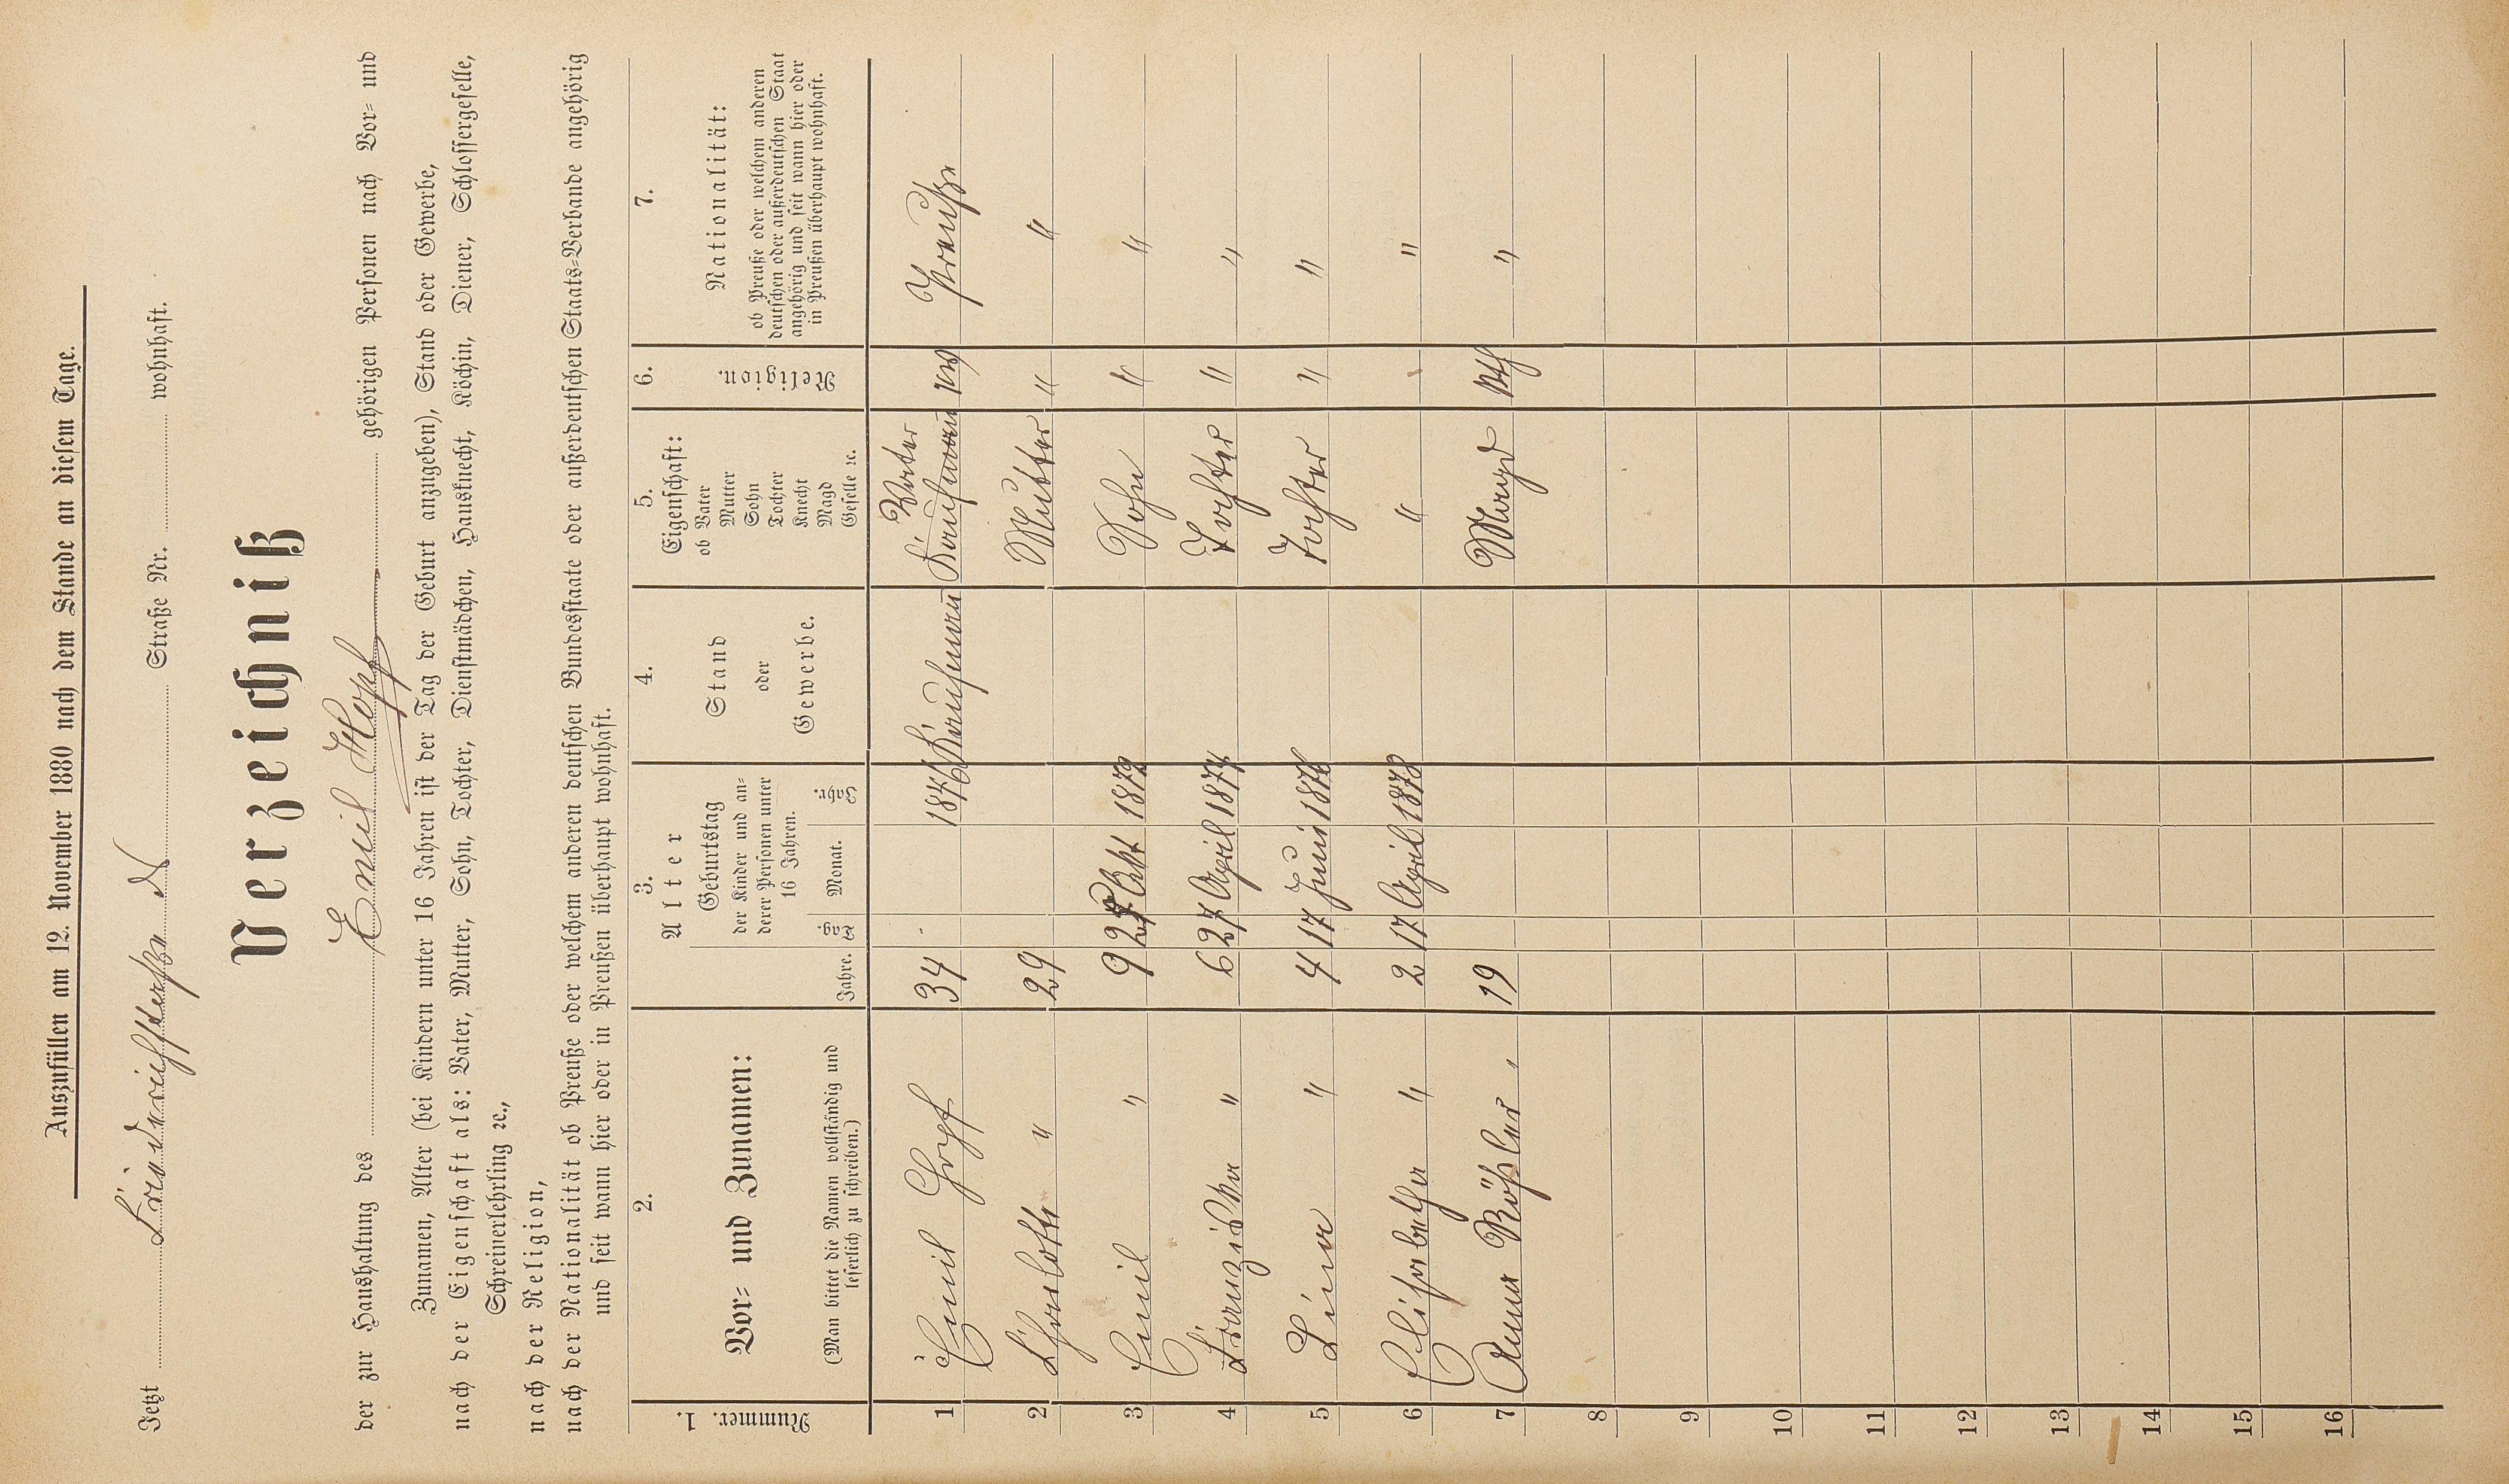 Auszufüllen am 12. November 1880 nach dem Stande an diesem Tage.
Jetzt Friedrichstraße Straße Nr. wohnhaft.
Verzeichniß
der zur Haushaltung des Emil Hopf gehörigen Personen nach Vor- und
Zunamen, Alter (bei Kindern unter 16 Jahren ist der Tag der Geburt anzugeben), Stand oder Gewerbe,
nach der Eigenschaft als: Vater, Mutter, Sohn, Tochter, Dienstmädchen, Hausknecht, Köchin, Diener, Schlossergeselle,
Schreinerlehrling ꝛc.,
nach der Religion,
nach der Nationalität ob Preuße oder welchem anderen deutschen Bundesstaate oder außerdeutschen Staats-Verbande angehörig
und seit wann hier oder in Preußen überhaupt wohnhaft.
1. Nummer.
2.
Vor- und Zunamen:
(Man bittet die Namen vollständig und
leserlich zu schreiben.)
3.
Alter
Jahre.
Geburtstag
der Kinder und an-
derer Personen unter
16 Jahren.
Tag Monat. Jahr.
4.
Stand
oder
Gewerbe.
5.
Eigenschaft:
ob Vater
Mutter
Sohn
Tochter
Knecht
Magd
Geselle ꝛc.
6.
Religion.
7.
Nationalität:
ob Preuße oder welchem anderen
deutschen oder außerdeutschen Staat
angehörig und seit wann hier oder
in Preußen überhaupt wohnhaft.
1 Emil Hopf 34 1846 Kaufmann Vater Kaufmann Preuße
2 " 29 Mutter " "
3 Emil " 9 27 1872 Sohn " "
4 Franziska " 6 27 April 1874 Tochter " "
5 Lina " 4 17 Juni 1876 Tochter " "
6 Elisabetha " 2 17 April 1878 " "
7 Anna 19 Magd kth "
8
9
10
11
12
13
14
15
16